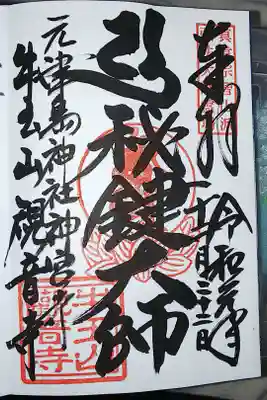 奉拝
令和元年
秘鍵大師
元津島神社神宮寺
牛玉山観音寺
牛玉山
観音寺